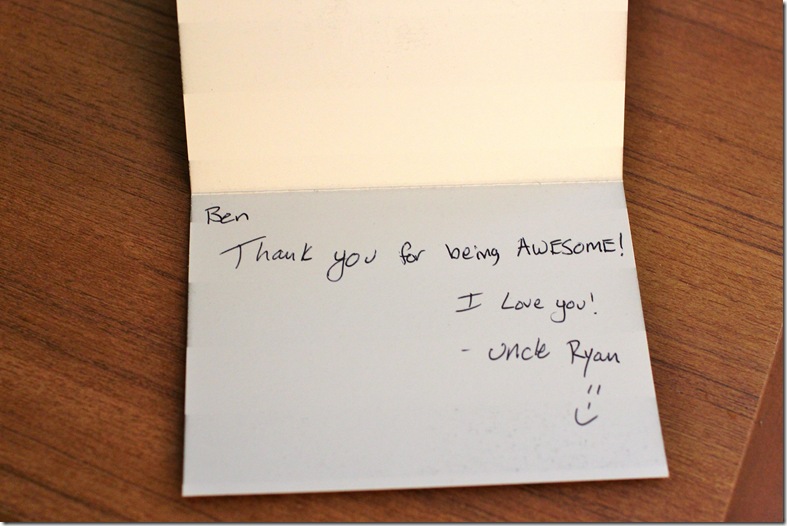 Ben
Thank you for being AWESOME!
I Love you!
- Uncle Ryan